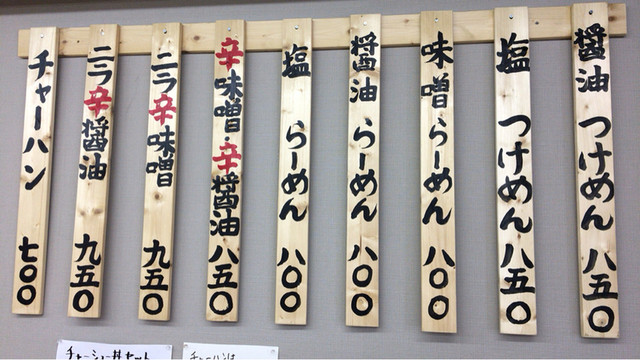 醤油 つけめん 八五〇
塩 つけめん 八五〇
味噌 らーめん 八〇〇
醤油 らーめん 八〇〇
塩 らーめん 八〇〇
辛味噌・辛醤油 八五〇
ニラ辛味噌 九五〇
ニラ辛醤油 九五〇
チャーハン 七〇〇
チャーシュー丼セット
チャーハンは